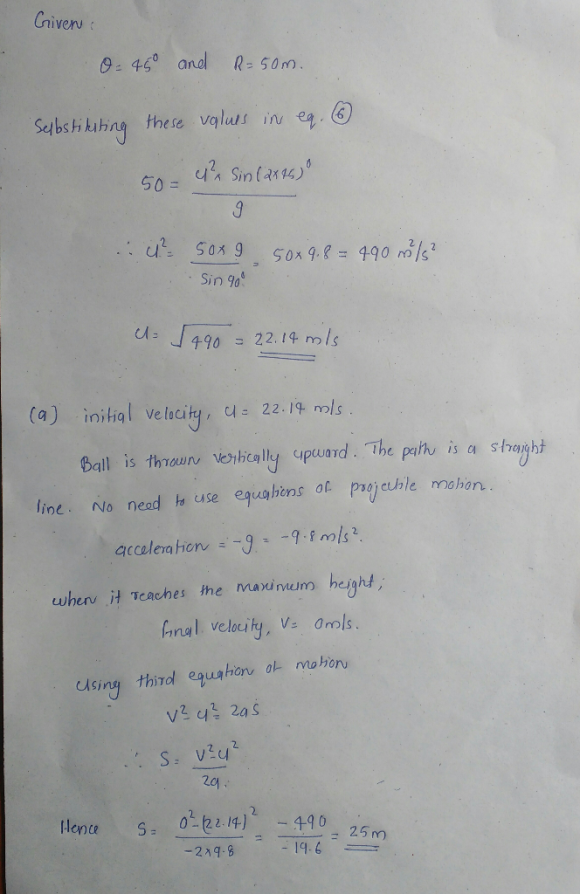 Given :
θ = 45° and R = 50m.
Substituting these values in eq. ⑥
50 = u² × Sin(2×45)° / g
∴ u² = 50×g / Sin 90° = 50×9.8 = 490 m²/s²
u = √490 = 22.14 m/s
(a) initial velocity, u = 22.14 m/s.
Ball is thrown vertically upward. The path is a straight
line. No need to use equations of projectile motion.
acceleration = -g = -9.8 m/s².
when it reaches the maximum height,
final velocity, V = 0m/s.
Using third equation of motion
V² - u² = 2as
∴ S = V² - u² / 2a.
Hence S = 0² - (22.14)² / -2×9.8 = -490 / -19.6 = 25m